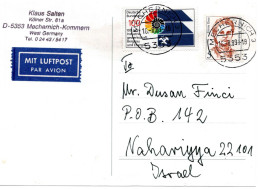 Klaus Salten
Kölner Str. 81a
D-5353 Mechernich-Kommern
West Germany
Tel. 0 24 43 / 8417
MIT LUFTPOST
PAR AVION
100
5353
5353
To
Mr. Dusan Finci
P.O.B. 142
Nahariyya 22101
Israel